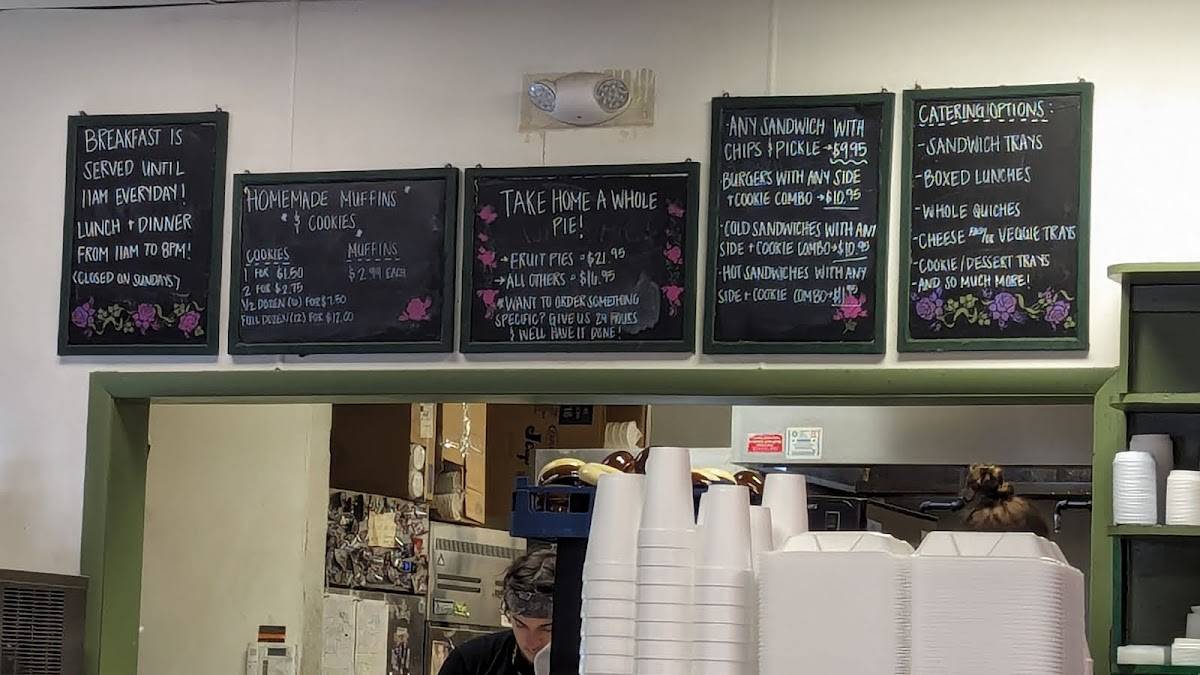 BREAKFAST IS
SERVED UNTIL
11AM EVERYDAY!
LUNCH + DINNER
FROM 11AM TO 8PM!
(CLOSED ON SUNDAYS)
HOMEMADE MUFFINS
& COOKIES
COOKIES
1 FOR $1.50
2 FOR $2.75
1/2 DOZEN (6) FOR $7.50
FULL DOZEN (12) FOR $12.00
MUFFINS
$2.99 EACH
TAKE HOME A WHOLE
PIE!
→FRUIT PIES = $21.95
→ALL OTHERS = $16.95
*WANT TO ORDER SOMETHING
SPECIFIC? GIVE US 24 HOURS
& WE'LL HAVE IT DONE!
-ANY SANDWICH WITH
CHIPS & PICKLE →$9.95
BURGERS WITH ANY SIDE
+ COOKIE COMBO →$10.95
-COLD SANDWICHES WITH ANY
SIDE + COOKIE COMBO→$10.95
-HOT SANDWICHES WITH ANY
SIDE + COOKIE COMBO→$11.95
CATERING OPTIONS:
-SANDWICH TRAYS
-BOXED LUNCHES
-WHOLE QUICHES
-CHEESE AND/OR VEGGIE TRAYS
-COOKIE/DESSERT TRAYS
-AND SO MUCH MORE!